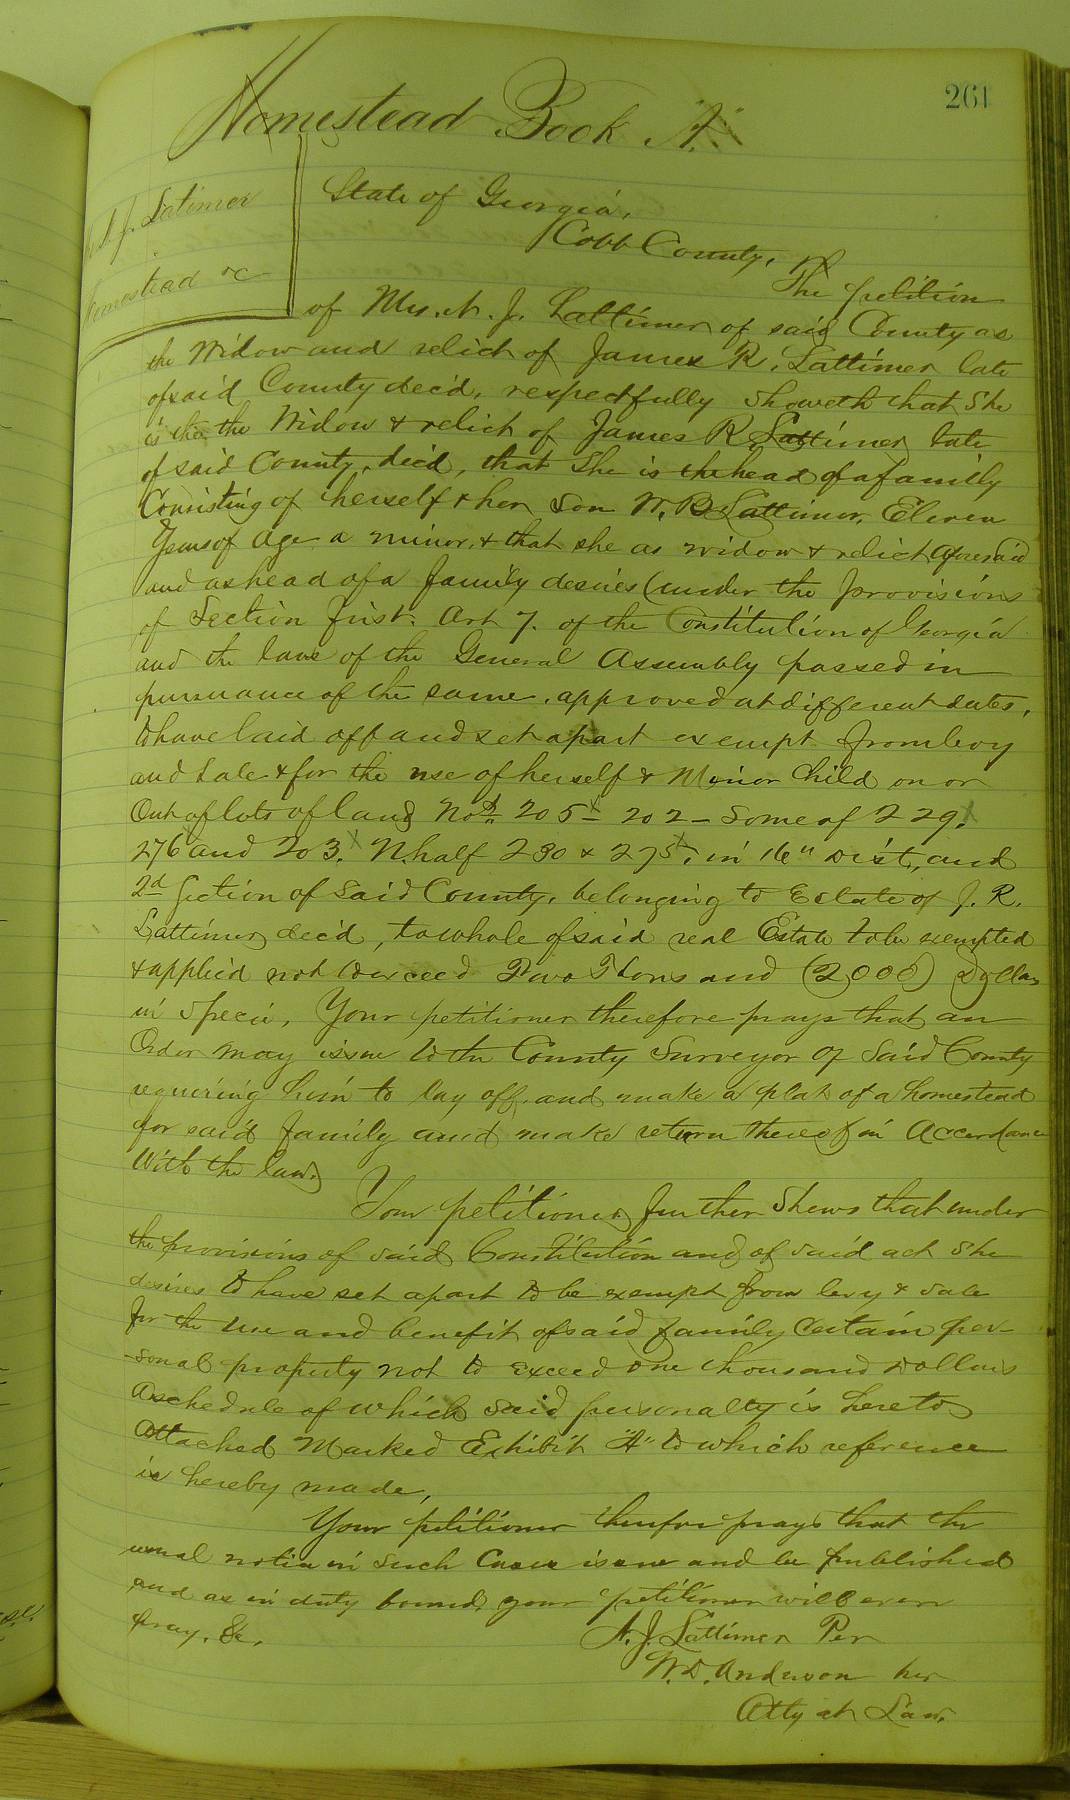 261
Homestead Book "A"
A. J. Latimer
Homestead &c
State of Georgia,
Cobb County,
The petition
of Mrs. A. J. Lattimer of said County as
the Widow and relict of James R. Lattimer late
of said County dec'd, respectfully Showeth that She
is the the Widow & relict of James R. Lattimer late
of said County, dec'd, that She is the head of a family
Consisting of herself & her Son W. B. Lattimer, Eleven
Years of age a minor, & that she as widow & relict aforesaid
and as head of a family desires (under the provisions
of Section first. Art 7. of the Constitution of Georgia
and the laws of the General Assembly passed in
pursuance of the same, approved at different dates,
to have laid off and set apart exempt from levy
and Sale & for the use of herself & Minor Child on or
Out of lots of land Nos. 205 - 202 - Some of 229.
276 and 203. N. half 230 & 275, in 16" Dist, and
2d Section of said County, belonging to Estate of J. R.
Lattimer dec'd, to whole of said real Estate to be exempted
& applied not to exceed Two Thousand (2000) Dollars
in Specie, Your petitioner therefore prays that an
Order may issue to the County Surveyor of Said County
requiring him to lay off and make a plat of a homestead
for said family and make return thereof in Accordance
With the law.
Your petitioner further Shews that under
the provisions of said Constitution and of said act She
desires to have set apart to be exempt from levy & sale
for the use and benefit of said family Certain per-
-sonal property not to exceed one thousand Dollars
A schedule of which said personalty is hereto
Attached Marked Exhibit "A" to which reference
is hereby made,
Your petitioner therefore prays that the
usual notice in such Cases issue and be published
and as in duty bound, your petitioner will ever
pray, &c.
A. J. Lattimer Per
W. D. Anderson her
Atty at Law.